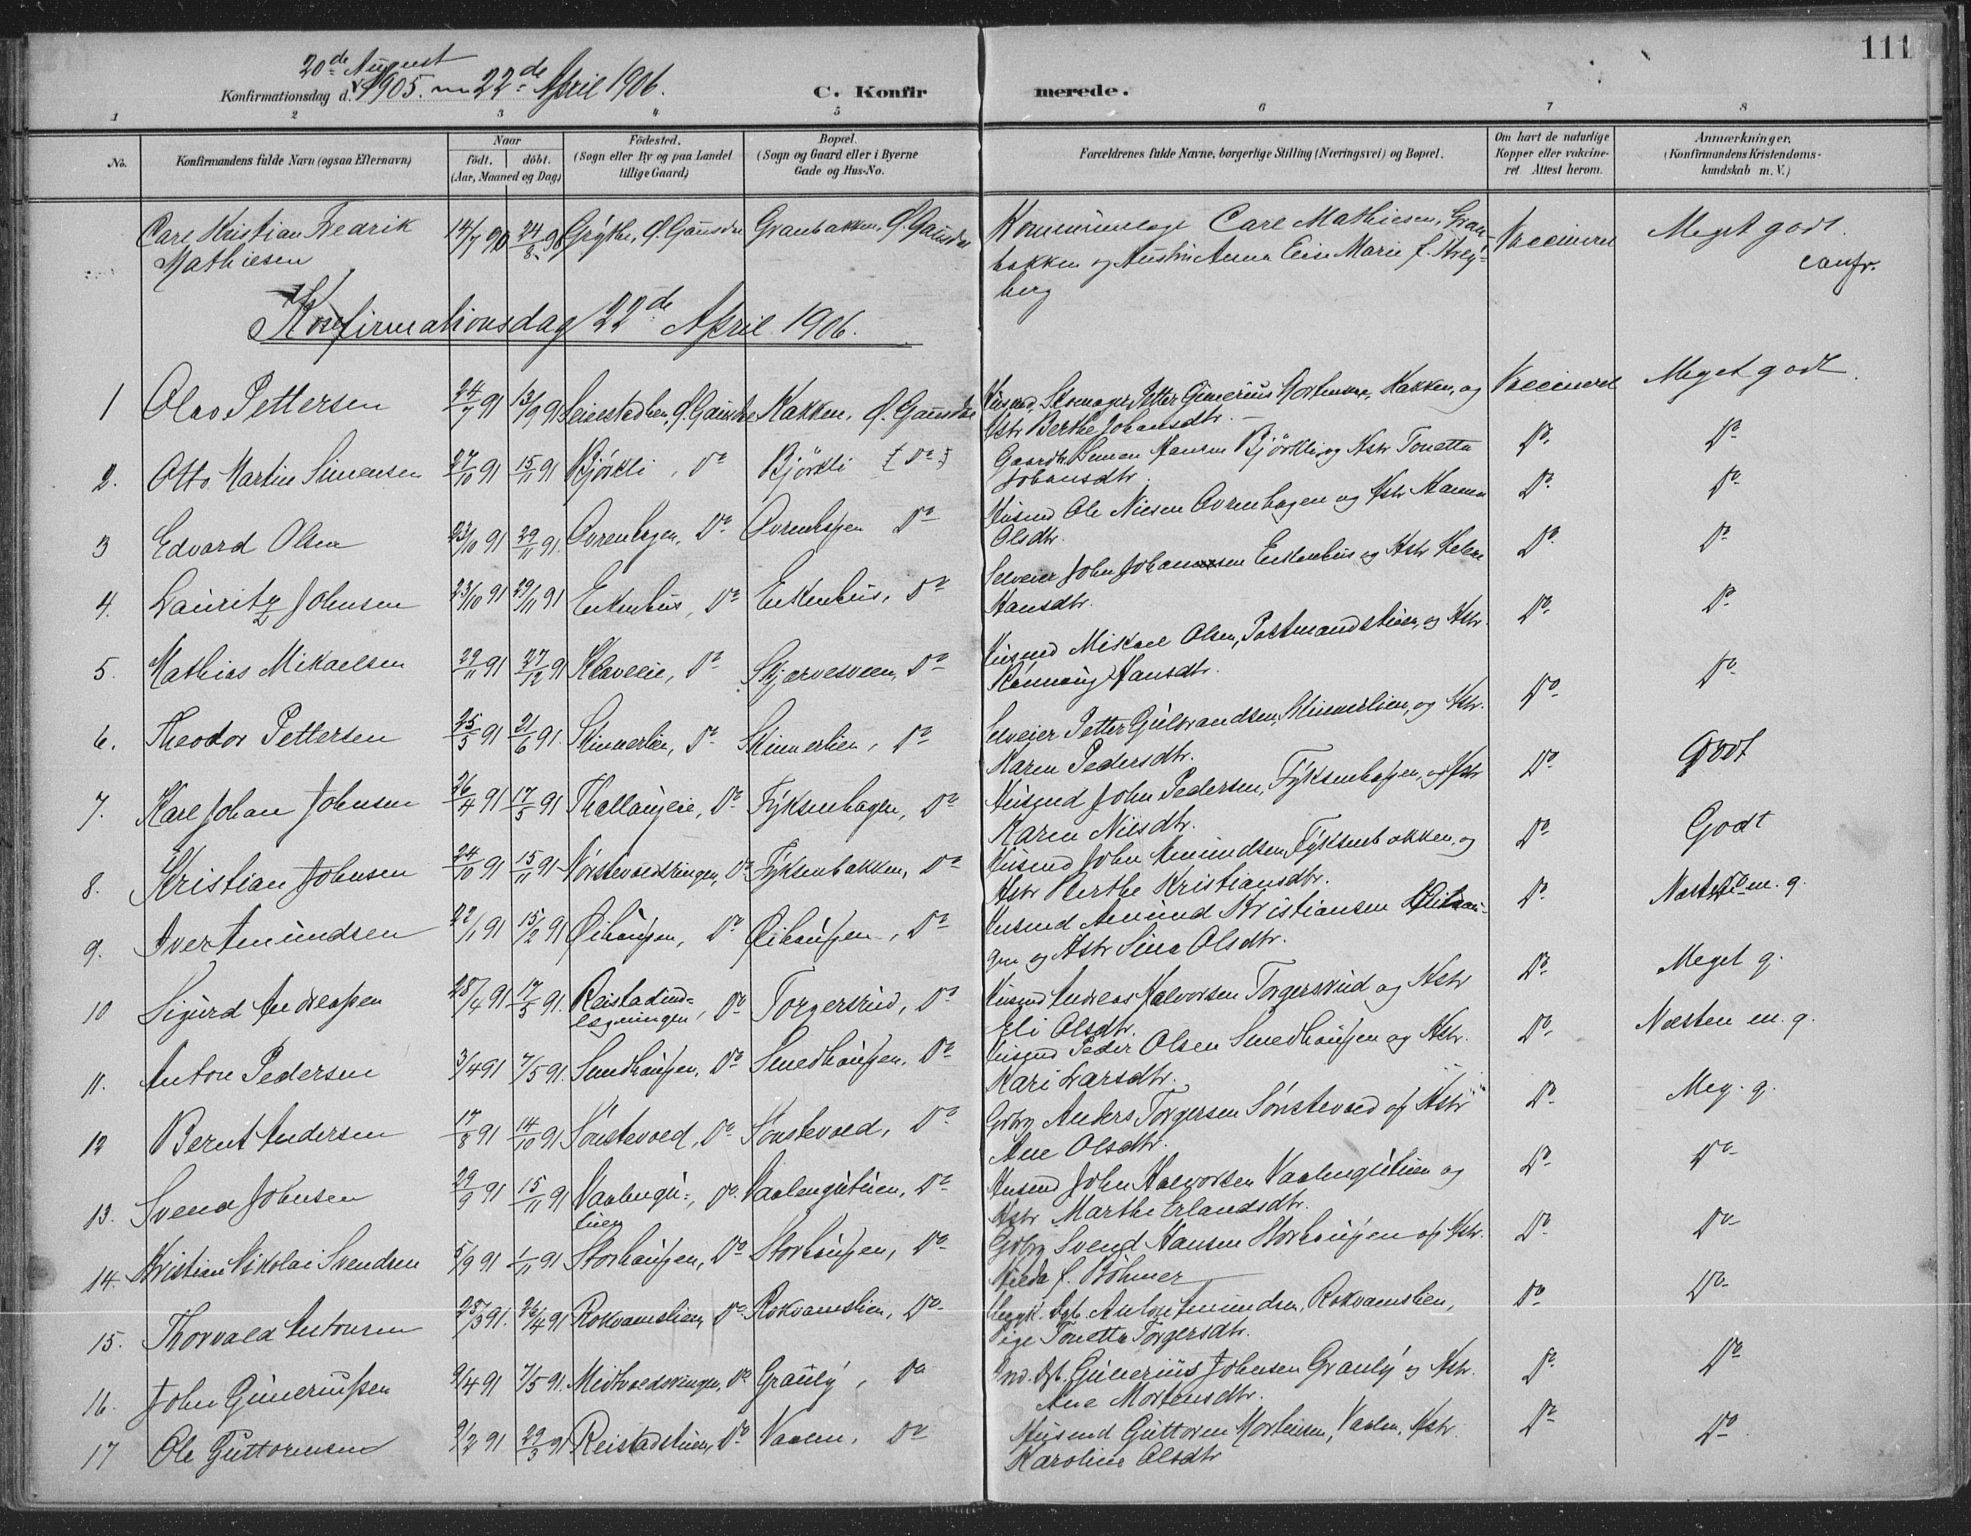 111
20de August
Konfirmationsdag d. 1905. 22de April 1906.
C. Konfirmerede.
1 2 3 4 5 6 7 8
No.
Konfirmandens fulde Navn (ogsaa Efternavn)
Naar
födt. döbt.
(Aar, Maaned og Dag)
Födested.
(Sogn eller By og paa Landet
tillige Gaard)
Bopæl.
(Sogn og Gaard eller i Byerne
Gade og Hus-No.
Forældrenes fulde Navne, borgerlige Stilling (Næringsvei) og Bopæl.
Om havt de naturlige
Kopper eller vakcine-
ret. Attest herom.
Anmærkninger.
(Konfirmandens Kristendoms-
kundskab m. V.)
Carl Kristian Fredrik 14/7 90 24/8 90 Ø. Gausdal Granbakken, Ø. Gausdal Carl Mathiesen, Gran- Vaccineret Meget godt.
Mathiesen bakken og Hustru Anna Elise Marie f. conf.
berg
Konfirmationsdag 22de April 1906.
1 Olav Pettersen 24/7 91 13/9 91 Ø. Gausdal Bakken, Ø. Gausdal Husmd. Skomager Petter Gunerius Mortensen, Bakken, og Vaccineret Meget godt.
Hstr Berthe Johansdtr.
2. Otto Martin Simensen 27/10 91 15/11 91 Bjørkli, Do Bjørkli Do Gaardbr. Simen Hansen Bjørkli og Hstr Tonetta Do Do
Johansdtr.
3 Edvard Olsen 23/10 91 29/11 91. Ovrenhagen, Do Ovrenhagen Do Husmd Ole Nilsen Ovrenhagen og Hstr Hanna Do Do
Olsdtr.
4. Lauritz Johnsen 23/10 91 29/11 91 Enkenhus, Do Enkenhus, Do Selveier John Johannesen Enkenhus og Hstr Helene Do Do
Hansdtr.
5. Mathias Mikaelsen 29/11 91 27/12 91 Do Skjervesveen, Do Husmd Mikael Olsen, Postmandstuen, og Hstr. Do Do
Rønnaug Hansdtr.
6. Theodor Pettersen 25/5 91 21/6 91. Skinnerlien, Do Skinnerlien, Do Selveier Petter Gulbrandsen, Skinnerlien, og Hstr. Do Do
Karen Pedersdtr.
7. Karl Johan Johnsen 26/4 91 17/5 91 Thallaugeie, Do Fyksenhagen, Do Husmd John Pedersen, Fyksenhagen, og Hstr Do Godt
Karen Nilsdtr.
8. Kristian Johnsen 24/10 91 15/11 91 Do Fyksenbakken, Do Husmd John Amundsen, Fyksenbakken, og Do Godt
Hstr Berthe Kristiansdtr.
9. Iver Amundsen 22/1 91 15/2 91 Øihaugen, Do Øihaugen, Do Husmd Amund Kristiansen Øihau- Do Næsten m. g.
gen og Hstr Sina Olsdtr.
10 Sigurd Andreassen 28/4 91 17/5 91. Reistadind- Do Torgersrud, Do Husmd Andreas Halvorsen Torgersrud og Hstr Do Meget g.
lægningen, Eli Olsdtr.
11. Anton Pedersen 3/4 91 7/5 91. Smedhaugen, Do Smedhaugen, Do Husmd Peder Olsen Smedhaugen og Hstr. Do Næsten m. g.
Mari Larsdtr.
12 Bernt Andersen 17/8 91 14/10 91 Sønstevold, Do Sønstevold, Do Grbrg Anders Torgersen Sønstevold og Hstr Do Meg. g.
Ane Olsdtr.
13. Svend Johnsen 29/9 91 15/11 91 Do Do Husmd John Halvorsen og Do Do
Hstr. Marthe Erlandsdtr.
14. Kristian Nikolai Svendsen 5/9 91 1/11 91 Storhaugen, Do Storhaugen, Do Grbrg Svend Hansen Storhaugen og Hstr. Do Do
Hilda f. Böhmer
15. Thorvald Antonsen 25/3 91. 26/4 91 Rokvamslien, Do Rokvamslien, Do Anton Amundsen, Rokvamslien, Do Do
Pige Tonetta Torgersdtr.
16. John Gunerussen 9/4 91 7/5 91. Do Granly, Do Ind. Gunerius Johnsen Granly og Hstr. Do Do
Ane Mortensdtr.
17 Ole Guttormsen 9/2 91 29/3 91 Reistadstuen, Do Vaalen, Do Husmd Guttorm Mortensen, Vaalen, Hstr. Do Do
Karoline Olsdtr